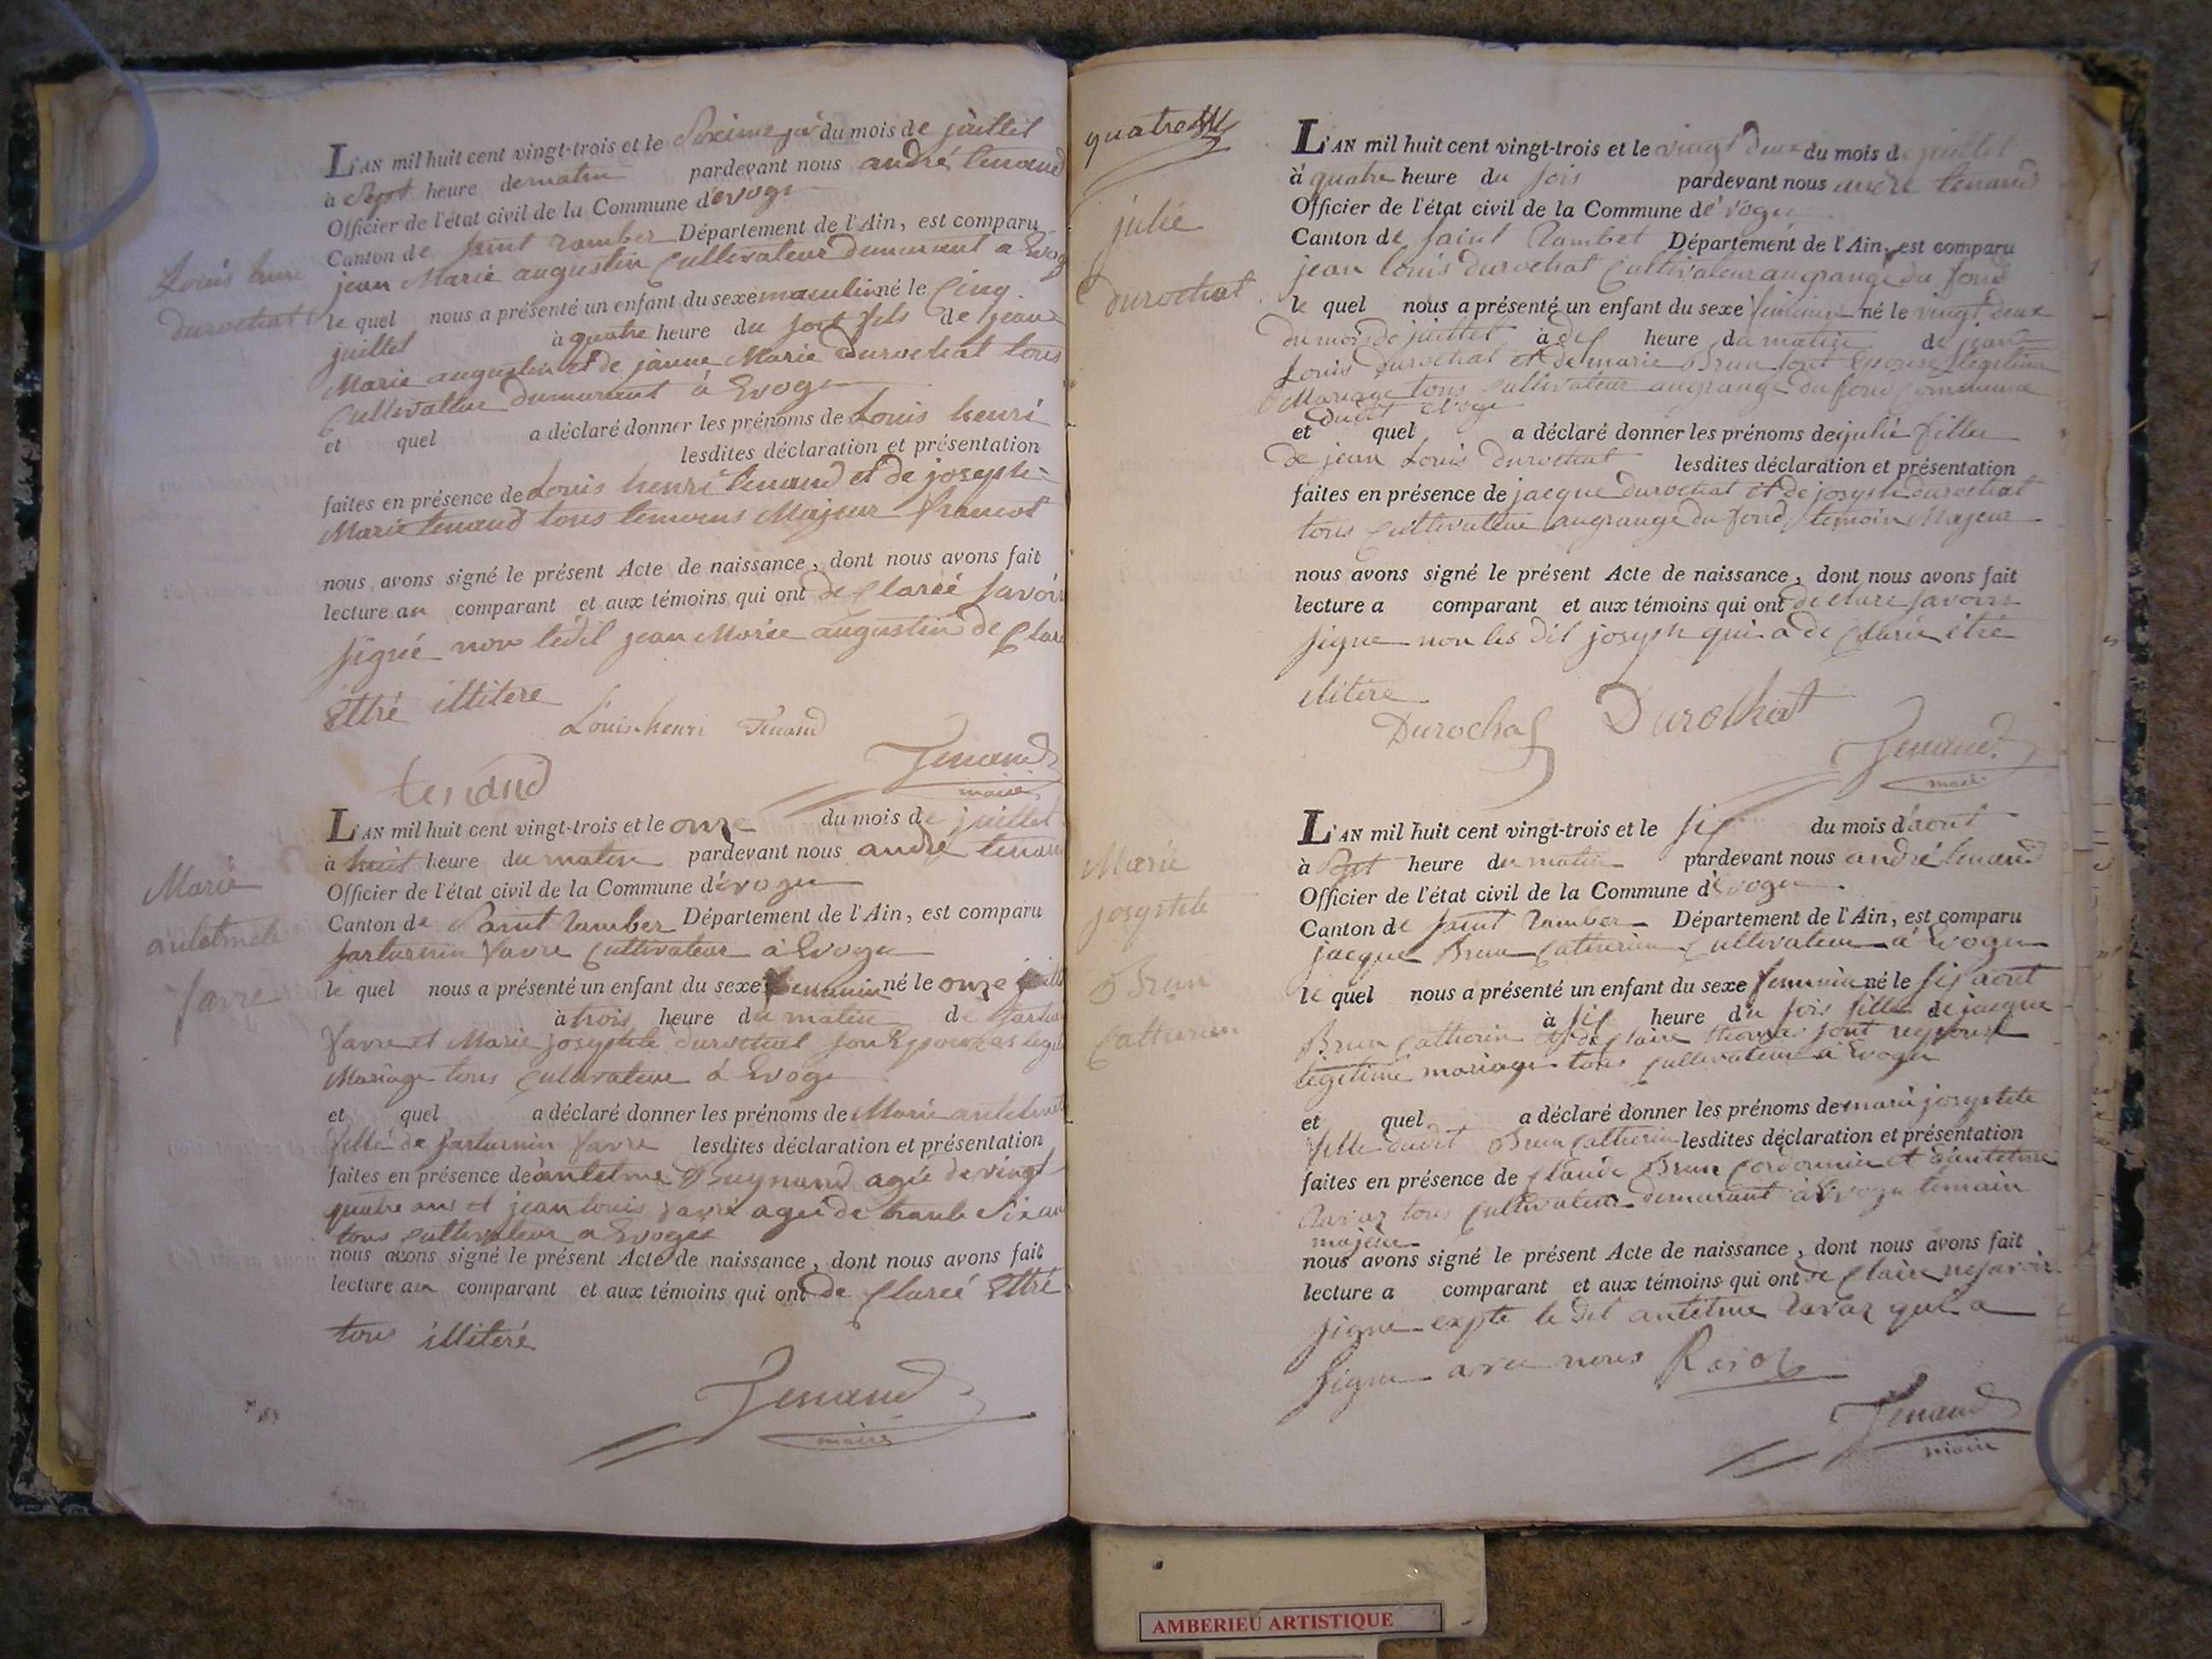 L'AN mil huit cent vingt-trois et le Sixime jor du mois de jüillet
à Sept heure de matin pardevant nous andré tenand
Officier de l'état civil de la Commune d'evoge
Canton de saint ramber Département de l'Ain, est comparu
jean Marie augustin Cultivateur demurant a Evog
Louis henri
durochat
le quel nous a présenté un enfant du sexe masculin né le Cinq
juillet à quatre heure du soir fils de jean
Marie augustin et de jànne Marie durochat tous
Cultivateur demurant à Evoge
et quel a déclaré donner les prénoms de Louis henri
lesdites déclaration et présentation
faites en présence de Louis henri tenand et de joseph
Marie tenand tous temoins Majeur
nous avons signé le présent Acte de naissance, dont nous avons fait
lecture au comparant et aux témoins qui ont de Claréé savoir
signé non ledit jean Marie augustin de Clare
Ettré illitere
Louis henri Tenand
tenand
Tenand
maire
L'AN mil huit cent vingt-trois et le onze du mois de juillet
à huit heure du matin pardevant nous andré tenan
Officier de l'état civil de la Commune d'évoge
Canton de Saint ramber Département de l'Ain, est comparu
Marie
antelmele
favre
sarturnin favre Cultivateur à Evoge
le quel nous a présenté un enfant du sexe femunin né le onze juill
à trois heure du matin de sartur
favre et Marie josephte durochat son Epouse
Mariage tous Cultivateur à Evoge
et quel a déclaré donner les prénoms de Marie antelm
fille de sarturnin favre lesdites déclaration et présentation
faites en présence de antelme Buynand agée de vingt
quatre ans et jean louis favre agée de trante Six an
tous cultivateur a Evoges
nous avons signé le présent Acte de naissance, dont nous avons fait
lecture au comparant et aux témoins qui ont de Claréé Ettre
tous illiteré
Tenand
maire
quatre
L'AN mil huit cent vingt-trois et le vingt deux du mois de juillet
à quatre heure du soir pardevant nous andré tenand
Officier de l'état civil de la Commune d'é voge
Canton de saint Rambet Département de l'Ain, est comparu
julie
durochat
jean louis durochat Cultivateur au grange du fond
le quel nous a présenté un enfant du sexe feminin né le vingt deux
du mois de juillet à six heure du matin de jean
Louis durochat et de marie Brun sont Epouse legitime
Mariage tous cultivateur au grange du fond Commune
dudit Evoge
et quel a déclaré donner les prénoms de julié fille
de jean Louis durochat lesdites déclaration et présentation
faites en présence de jacque durochat et de joseph durochat
tous Cultivateur au grange du fond temoin Majeur
nous avons signé le présent Acte de naissance, dont nous avons fait
lecture a comparant et aux témoins qui ont declaré savoirs
signe non les dit joseph qui a de Clarée étré
ilitere
Durochat Durochat
Tenand
maire
L'AN mil huit cent vingt-trois et le six du mois d'aout
à Sept heure du matin pardevant nous andré tenand
Officier de l'état civil de la Commune d'Evoge
Canton de saint Ramber Département de l'Ain, est comparu
Marie
josephte
Brun
Catherin
jacque Brun Catherin Cultivateur à Evoge
le quel nous a présenté un enfant du sexe feminin né le six aout
à six heure du soir fille de jacque
Brun Catherin et de Claire
legitime mariage tous cultivateur à Evoge
et quel a déclaré donner les prénoms de marie josephte
fille dudit Brun Catherin lesdites déclaration et présentation
faites en présence de Claude Brun Cordonnier et d'antelme
Ravaz tous Cultivateur demurant à Evoge temoin
majeur
nous avons signé le présent Acte de naissance, dont nous avons fait
lecture a comparant et aux témoins qui ont de Claire ne savoir
signe expte le dit antelme Ravaz qui a
signe avec nous Ravaz
Tenand
maire
AMBERIEU ARTISTIQUE